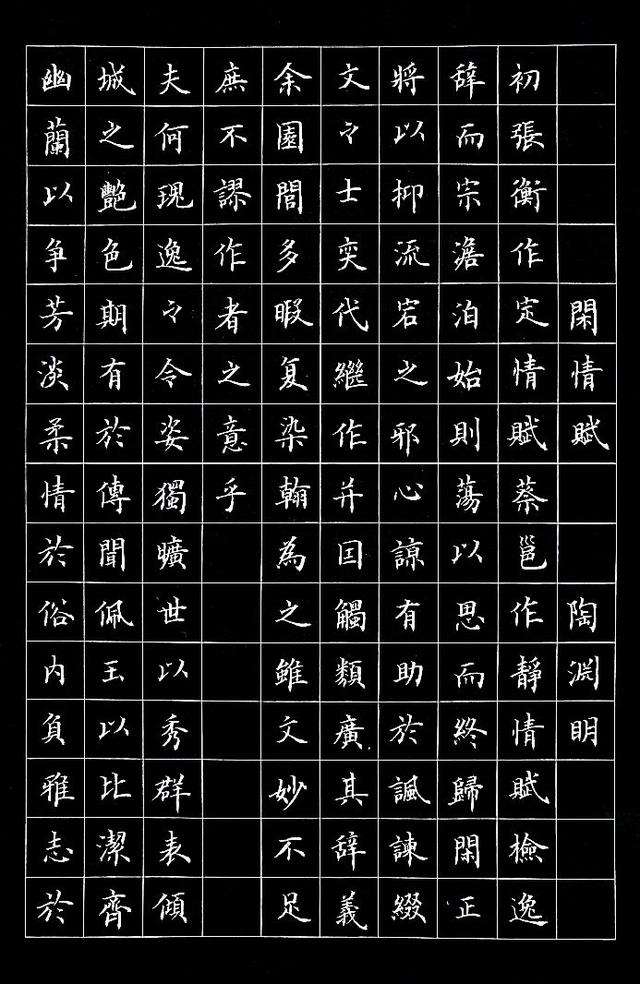 閑情賦 陶淵明
初張衡作定情賦蔡邕作靜情賦檢逸
辞而宗澹泊始則蕩以思而終歸閑正
將以抑流宕之邪心諒有助於諷諫綴
文々士奕代繼作并因觸類廣其辞義
余園閭多暇复染翰為之雖文妙不足
庶不謬作者之意乎
夫何瑰逸々令姿獨曠世以秀群表傾
城之艷色期有於傳聞佩玉以比潔齊
幽蘭以争芳淡柔情於俗内負雅志於